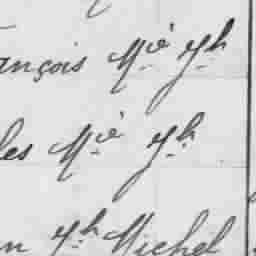 ançois Mie Jh
les Mie Jh
n Jh Michel